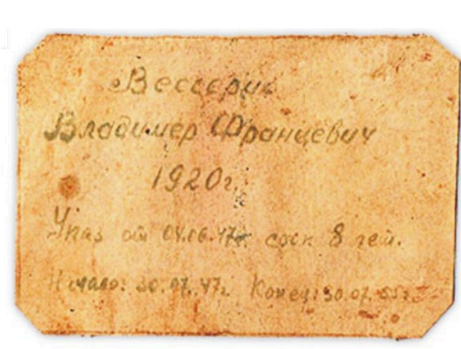 Вессарис
Владимер Францевич
1920г.
Указ от 04.06.47г срок 8 лет.
Начало: 30.07.47г. Конец: 30.07.55г.